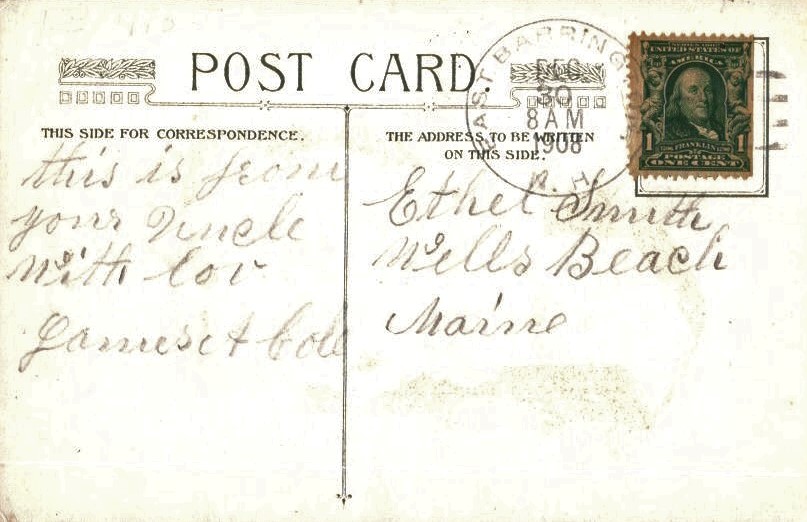 POST CARD.
THIS SIDE FOR CORRESPONDENCE.
this is from
your Uncle
With lov
THE ADDRESS TO BE WRITTEN
ON THIS SIDE.
Ethel Smith
Wells Beach
Maine
EAST BARRING
DEC
30
8 AM
1908
N. H.
SERIES 1902
UNITED STATES OF
AMERICA
1 FRANKLIN 1
POSTAGE
ONE CENT